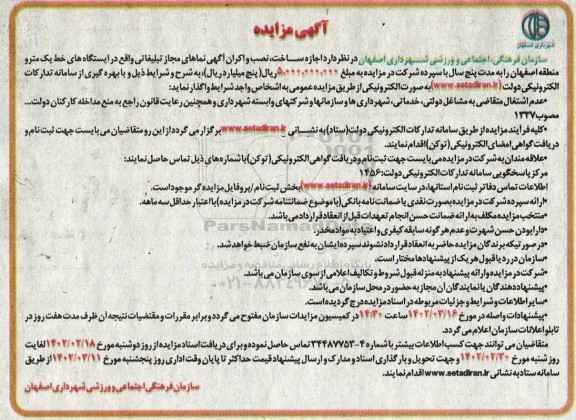 آگهی مزایده
شهرداری اصفهان
سازمان فرهنگی، اجتماعی و ورزشی شهرداری اصفهان در نظر دارد اجازه ساخت، نصب و اکران آگهی نماهای مجاز تبلیغاتی واقع در ایستگاه های خط یک مترو
منطقه اصفهان را به مدت پنج سال با سپرده شرکت در مزایده به مبلغ ۵,۰۰۰,۰۰۰,۰۰۰ ریال (پنج میلیارد ریال)، به شرح و شرایط ذیل و با بهره گیری از سامانه تدارکات
الکترونیکی دولت (www.setadiran.ir) به صورت الکترونیکی از طریق مزایده عمومی به اشخاص واجد شرایط واگذار نماید:
*عدم اشتغال متقاضی به مشاغل دولتی، خدماتی، شهرداری ها و سازمانها و شرکتهای وابسته شهرداری و همچنین رعایت قانون راجع به منع مداخله کارکنان دولت...
مصوب ۱۳۳۷
*کلیه فرآیند مزایده از طریق سامانه تدارکات الکترونیکی دولت (ستاد) به نشانی www.setadiran.ir برگزار می گردد از این رو متقاضیان می بایست جهت ثبت نام و
دریافت گواهی امضای الکترونیکی (توکن) اقدام نمایند.
*علاقه مندان به شرکت در مزایده می بایست جهت ثبت نام و دریافت گواهی الکترونیکی (توکن) با شماره های ذیل تماس حاصل نمایند:
مرکز پاسخگویی سامانه تدارکات الکترونیکی دولت: ۱۴۵۶
اطلاعات تماس دفاتر ثبت نام استانها، در سایت سامانه (www.setadiran.ir) بخش ثبت نام / پروفایل مزایده گر موجود است.
*ارائه سپرده شرکت در مزایده بصورت نقدی یا ضمانت نامه بانکی (با موضوع ضمانتنامه شرکت در مزایده) با اعتبار حداقل سه ماهه.
*منتخب مزایده مکلف به ارائه ضمانت حسن انجام تعهدات قبل از انعقاد قرارداد می باشد.
*دارا بودن حسن شهرت و عدم هر گونه سابقه کیفری و اعتیاد به مواد مخدر.
*در صورتیکه برندگان مزایده حاضر به انعقاد قرارداد نشوند سپرده ایشان به نفع سازمان ضبط خواهد شد.
*سازمان در رد یا قبول هر یک از پیشنهادها مختار است.
*شرکت در مزایده و ارائه پیشنهاد به منزله قبول شروط و تکالیف اعلامی از سوی سازمان می باشد.
*پیشنهاد دهندگان یا نمایندگان آن مجاز به حضور در محل سازمان می باشد.
*سایر اطلاعات و شرایط و جزئیات مربوطه در اسناد مزایده درج گردیده است.
*پیشنهادات واصله در مورخ ۱۴۰۲/۰۳/۱۶ ساعت ۱۴:۳۰ در کمیسیون مزایدات سازمان مفتوح می گردد و برابر مقررات و مقتضیات نتیجه آن ظرف مدت هفت روز در
تابلو اعلانات سازمان اعلام می گردد.
متقاضیان می توانند جهت کسب اطلاعات بیشتر با شماره ۴-۳۴۴۸۷۷۵۳ تماس حاصل نموده و برای دریافت اسناد مزایده از روز دوشنبه مورخ ۱۴۰۲/۰۲/۱۸ لغایت
روز شنبه مورخ ۱۴۰۲/۰۲/۳۰ و جهت تحویل و بارگذاری اسناد و مدارک و ارسال پیشنهاد قیمت حداکثر تا پایان وقت اداری روز پنجشنبه مورخ ۱۴۰۲/۰۳/۱۱ از طریق
سامانه ستاد به نشانی www.setadiran.ir اقدام نمایند.
سازمان فرهنگی اجتماعی و ورزشی شهرداری اصفهان